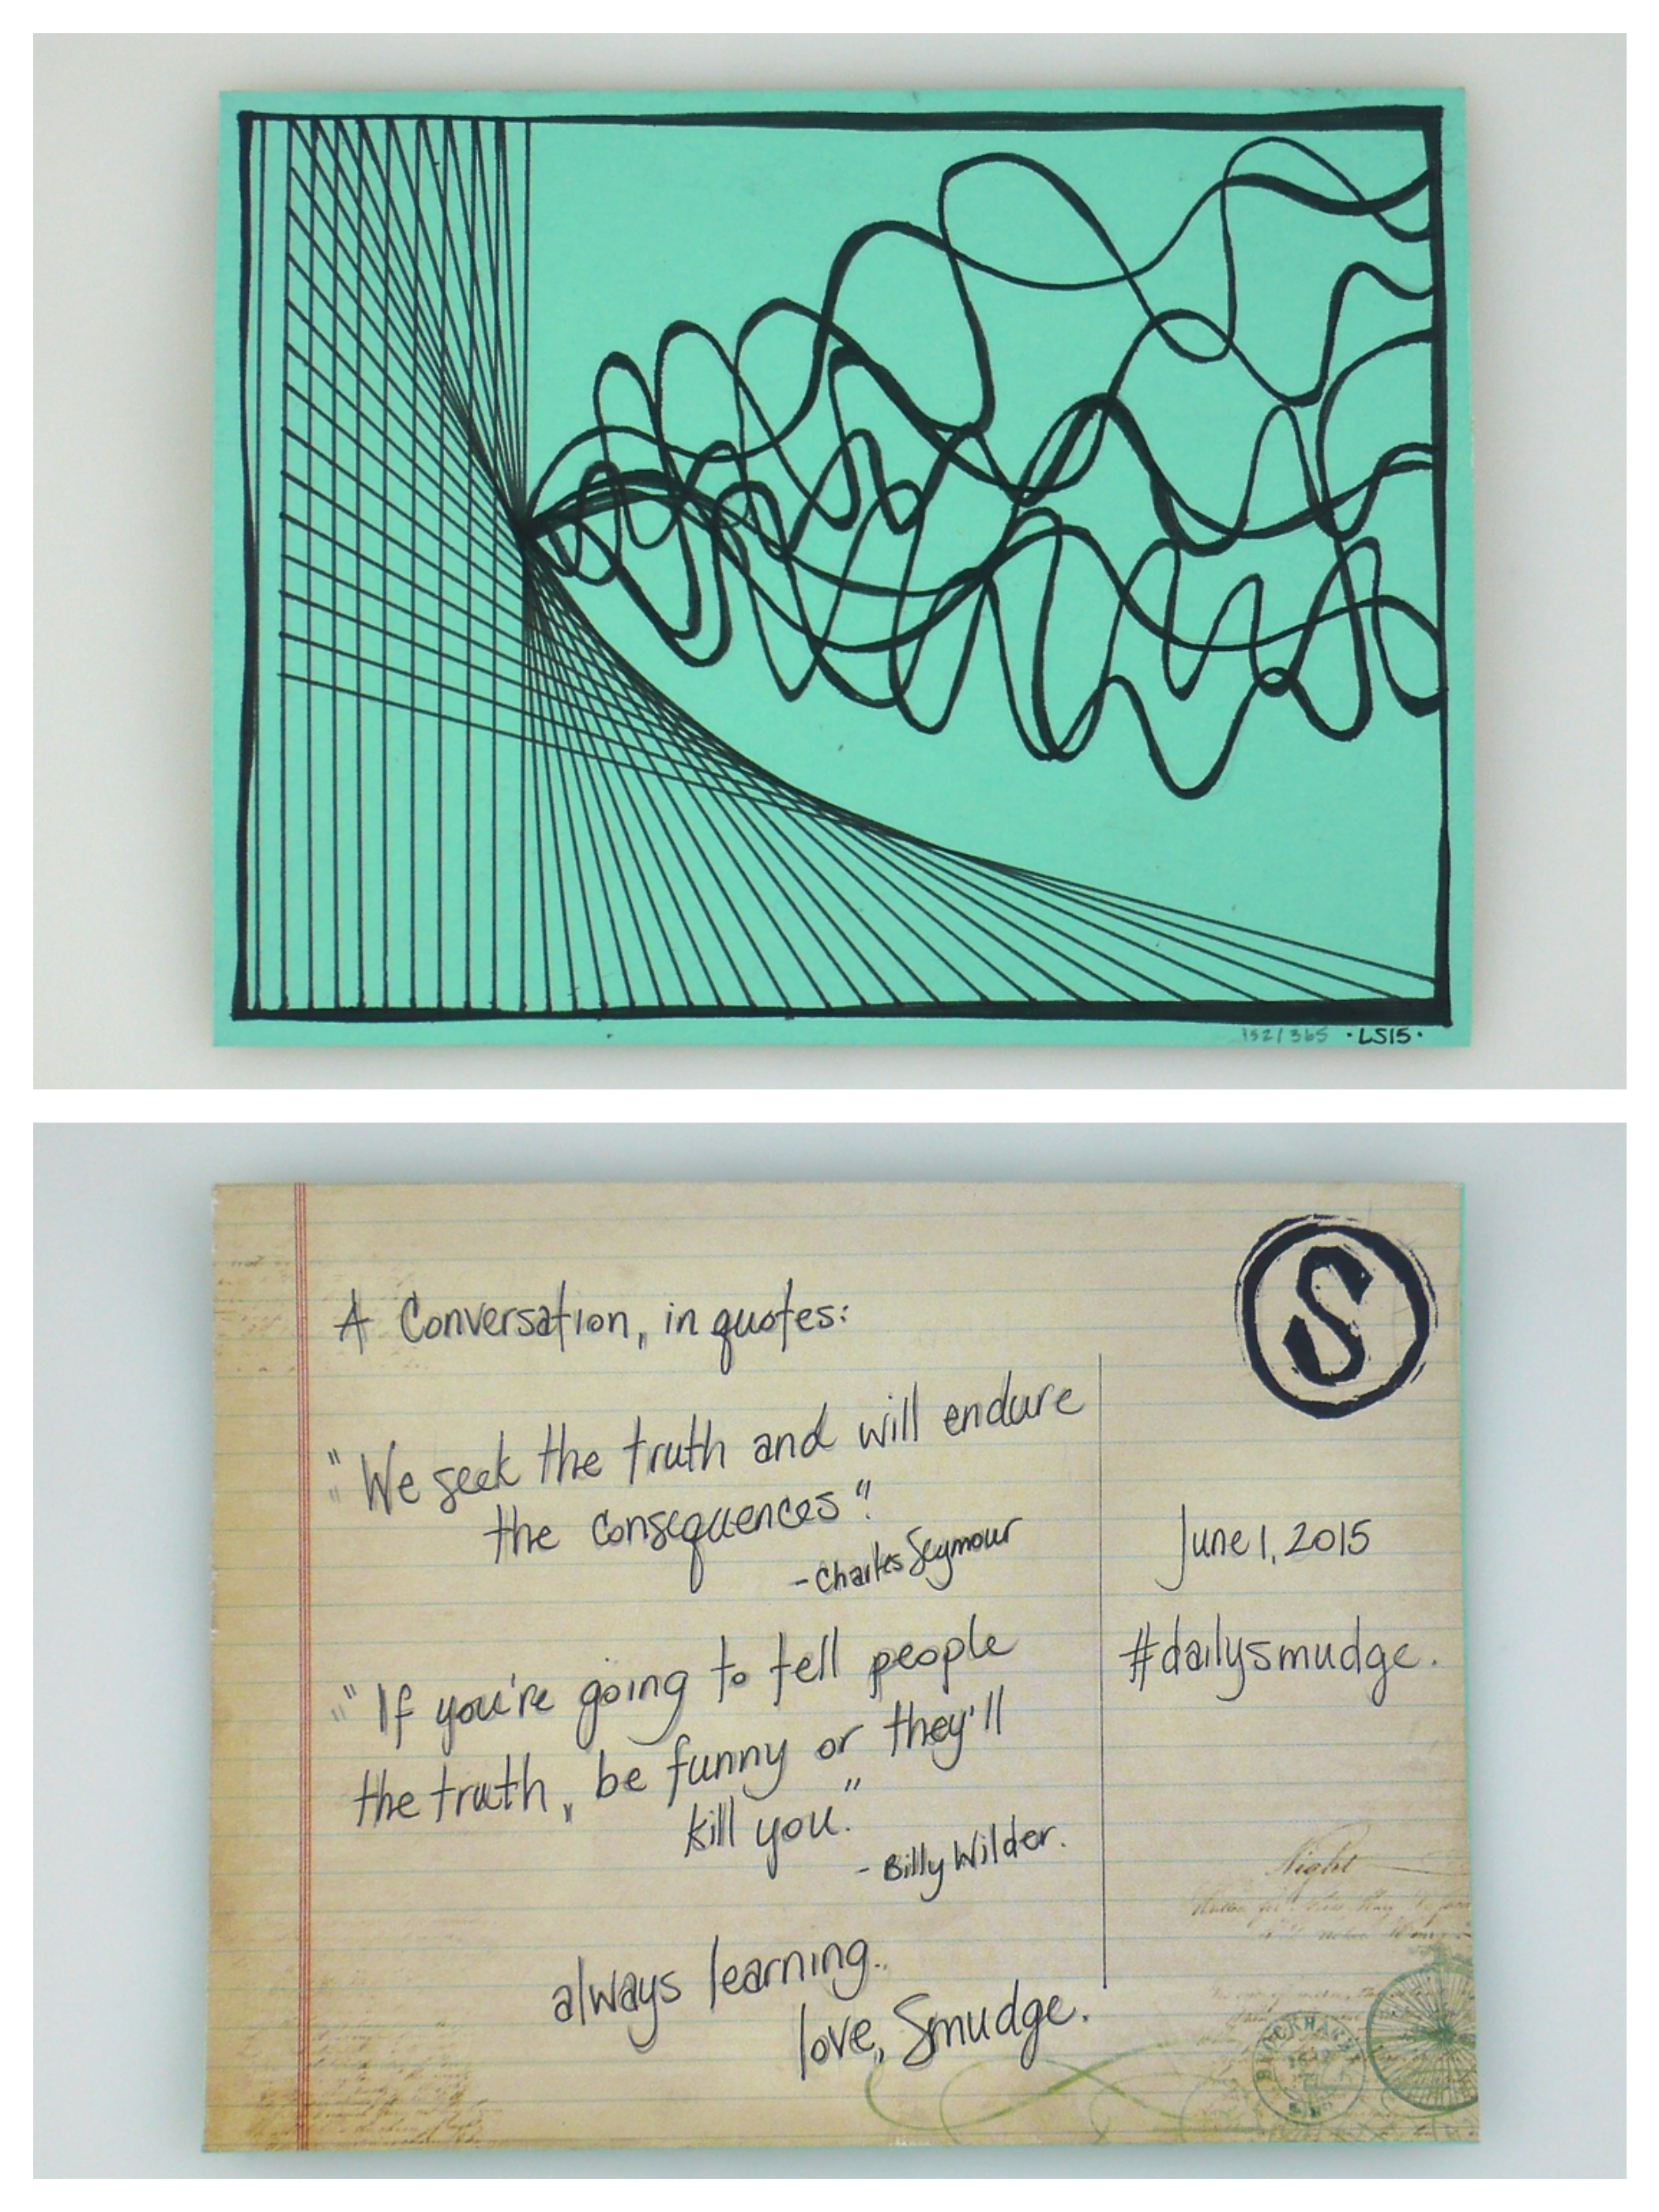 152/365 ·LS15·
S
A Conversation, in quotes:
"We seek the truth and will endure
the consequences".
- Charles Seymour
"If you're going to tell people
the truth, be funny or they'll
kill you."
- Billy Wilder.
always learning..
love, Smudge.
June 1, 2015
#dailysmudge.
Night